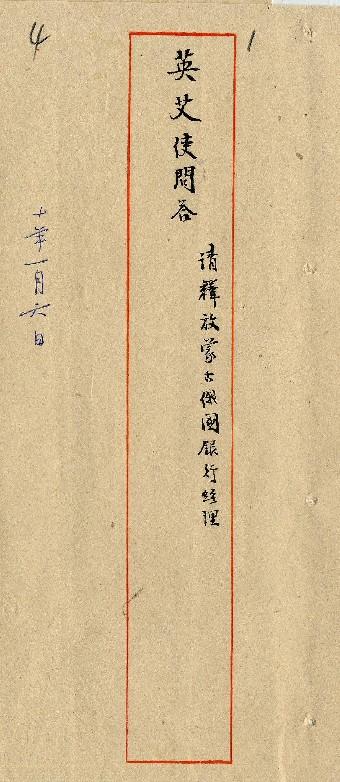 1
英艾使問答
請釋放蒙古俄國銀行經理
十年一月六日
4